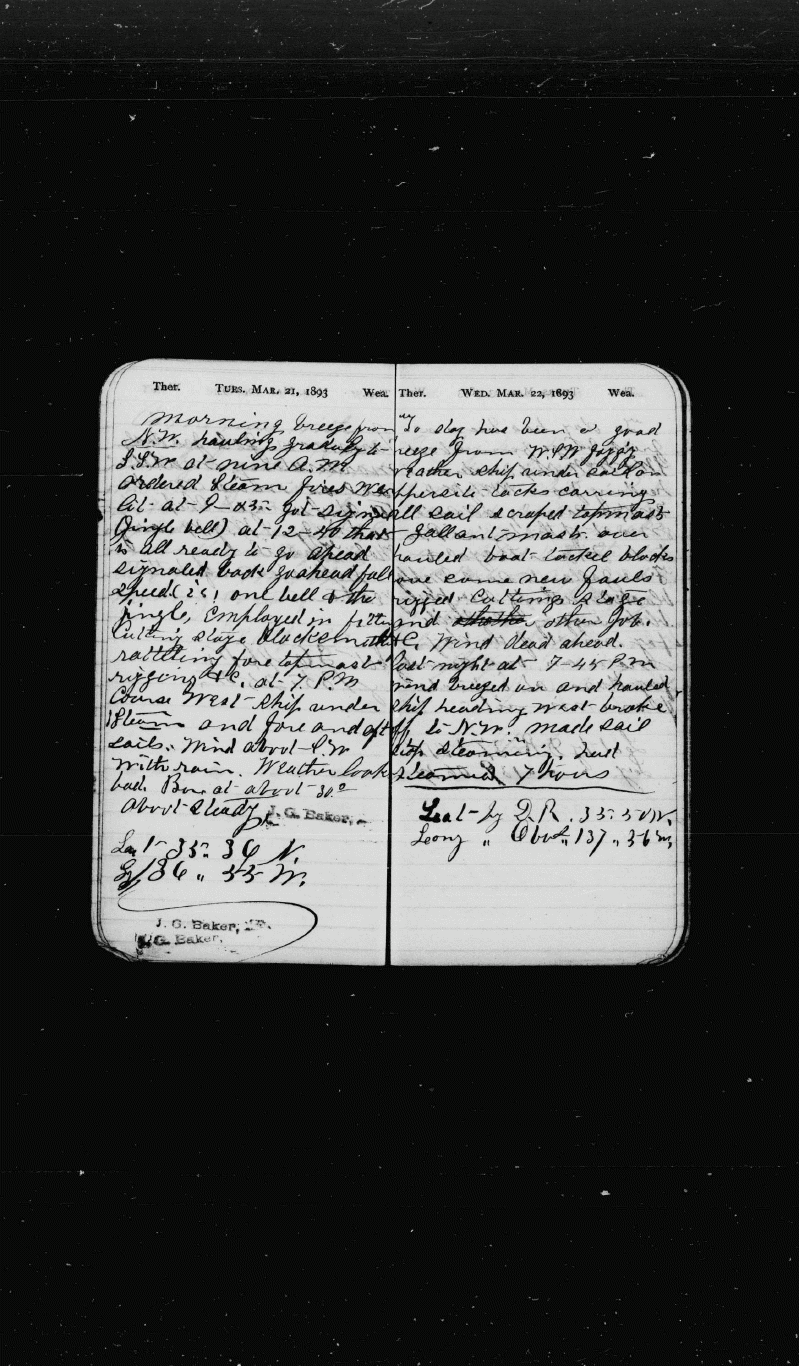 Ther. TUES. MAR. 21, 1893 Wea.
Morning breeze from
N.W. hauling gradualy to
S.S.W at nine A.M.
ordered Steam fires wer
lit at 9-25 got signal
(Jingle bell) at 12-40 that
is all ready to go ahead
signaled back go ahead full
speed one bell & the
jingle, Employed in fitting
Cutting stage blacksmith
rattling fore topmast
rigging &C. at 7. P.M
Course West ship under
Steam and fore and aft
sails. Wind about S.W
with rain. Weather looks
bad. Bar at about 30.0
about steady
J. G. Baker,
Lat 35 " 36 N.
136 " 55 W.
J. G. Baker,
J. G. Baker,
Ther. WED. MAR. 22, 1893 Wea.
To day has been a good
reeze from W.S.W foggy
eather ship under sail on
pposite tacks carring
ll sail scraped topmast
gallant masts over
hauled boat tackel blocks
ove some new fauls
rigged Cutting Stage
and other Job.
&C. Wind dead ahead.
last night at 7-45 P.M
wind breezed on and hauled
ship heading West broke
off to N.W. made sail
stop steamin. had
Steamed 7 hours
Leat by D.R. 35 " 50 N.
Leong " Obs " 137 " 36 W.